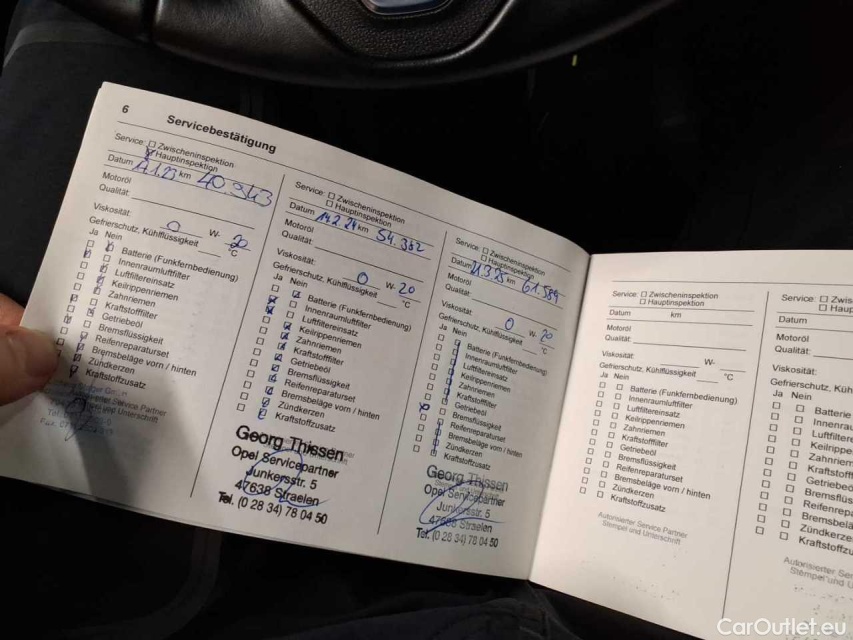 6
Servicebestätigung
Service: Zwischeninspektion
Hauptinspektion
Datum km 40 343
Motoröl
Qualität:
Viskosität: 0 W- 20
Gefrierschutz, Kühlflüssigkeit °C
Ja Nein
Batterie (Funkfernbedienung)
Innenraumluftfilter
Luftfiltereinsatz
Keilrippenriemen
Zahnriemen
Kraftstofffilter
Getriebeöl
Bremsflüssigkeit
Reifenreparaturset
Bremsbeläge vorn / hinten
Zündkerzen
Kraftstoffzusatz
Service Partner
und Unterschrift
Service: Zwischeninspektion
Hauptinspektion
Datum 14.2.24 km 54.382
Motoröl
Qualität:
Viskosität: 0 W- 20
Gefrierschutz, Kühlflüssigkeit °C
Ja Nein
Batterie (Funkfernbedienung)
Innenraumluftfilter
Luftfiltereinsatz
Keilrippenriemen
Zahnriemen
Kraftstofffilter
Getriebeöl
Bremsflüssigkeit
Reifenreparaturset
Bremsbeläge vorn / hinten
Zündkerzen
Kraftstoffzusatz
Georg Thissen
Opel Servicepartner
Junkersstr. 5
47638 Straelen
Tel. (0 28 34) 78 04 50
Service: Zwischeninspektion
Hauptinspektion
Datum km 61.589
Motoröl
Qualität:
Viskosität: 0 W- 20
Gefrierschutz, Kühlflüssigkeit °C
Ja Nein
Batterie (Funkfernbedienung)
Innenraumluftfilter
Luftfiltereinsatz
Keilrippenriemen
Zahnriemen
Kraftstofffilter
Getriebeöl
Bremsflüssigkeit
Reifenreparaturset
Bremsbeläge vorn / hinten
Zündkerzen
Kraftstoffzusatz
Georg Thissen
Opel Servicepartner
Junkersstr. 5
47638 Straelen
Tel. (0 28 34) 78 04 50
Service: Zwischeninspektion
Hauptinspektion
Datum km
Motoröl
Qualität:
Viskosität: W-
Gefrierschutz, Kühlflüssigkeit °C
Ja Nein
Batterie (Funkfernbedienung)
Innenraumluftfilter
Luftfiltereinsatz
Keilrippenriemen
Zahnriemen
Kraftstofffilter
Getriebeöl
Bremsflüssigkeit
Reifenreparaturset
Bremsbeläge vorn / hinten
Zündkerzen
Kraftstoffzusatz
Autorisierter Service Partner
Stempel und Unterschrift
Service: Zwis
Haup
Datum
Motoröl
Qualität:
Viskosität:
Gefrierschutz, Kü
Ja Nein
Batterie
Innenrau
Luftfilter
Keilrippe
Zahnriem
Kraftstoff
Getriebeö
Bremsflüs
Reifenrepa
Bremsbelä
Zündkerze
Kraftstoffzu
Autorisierter Se
Stempel und U
CarOutlet.eu